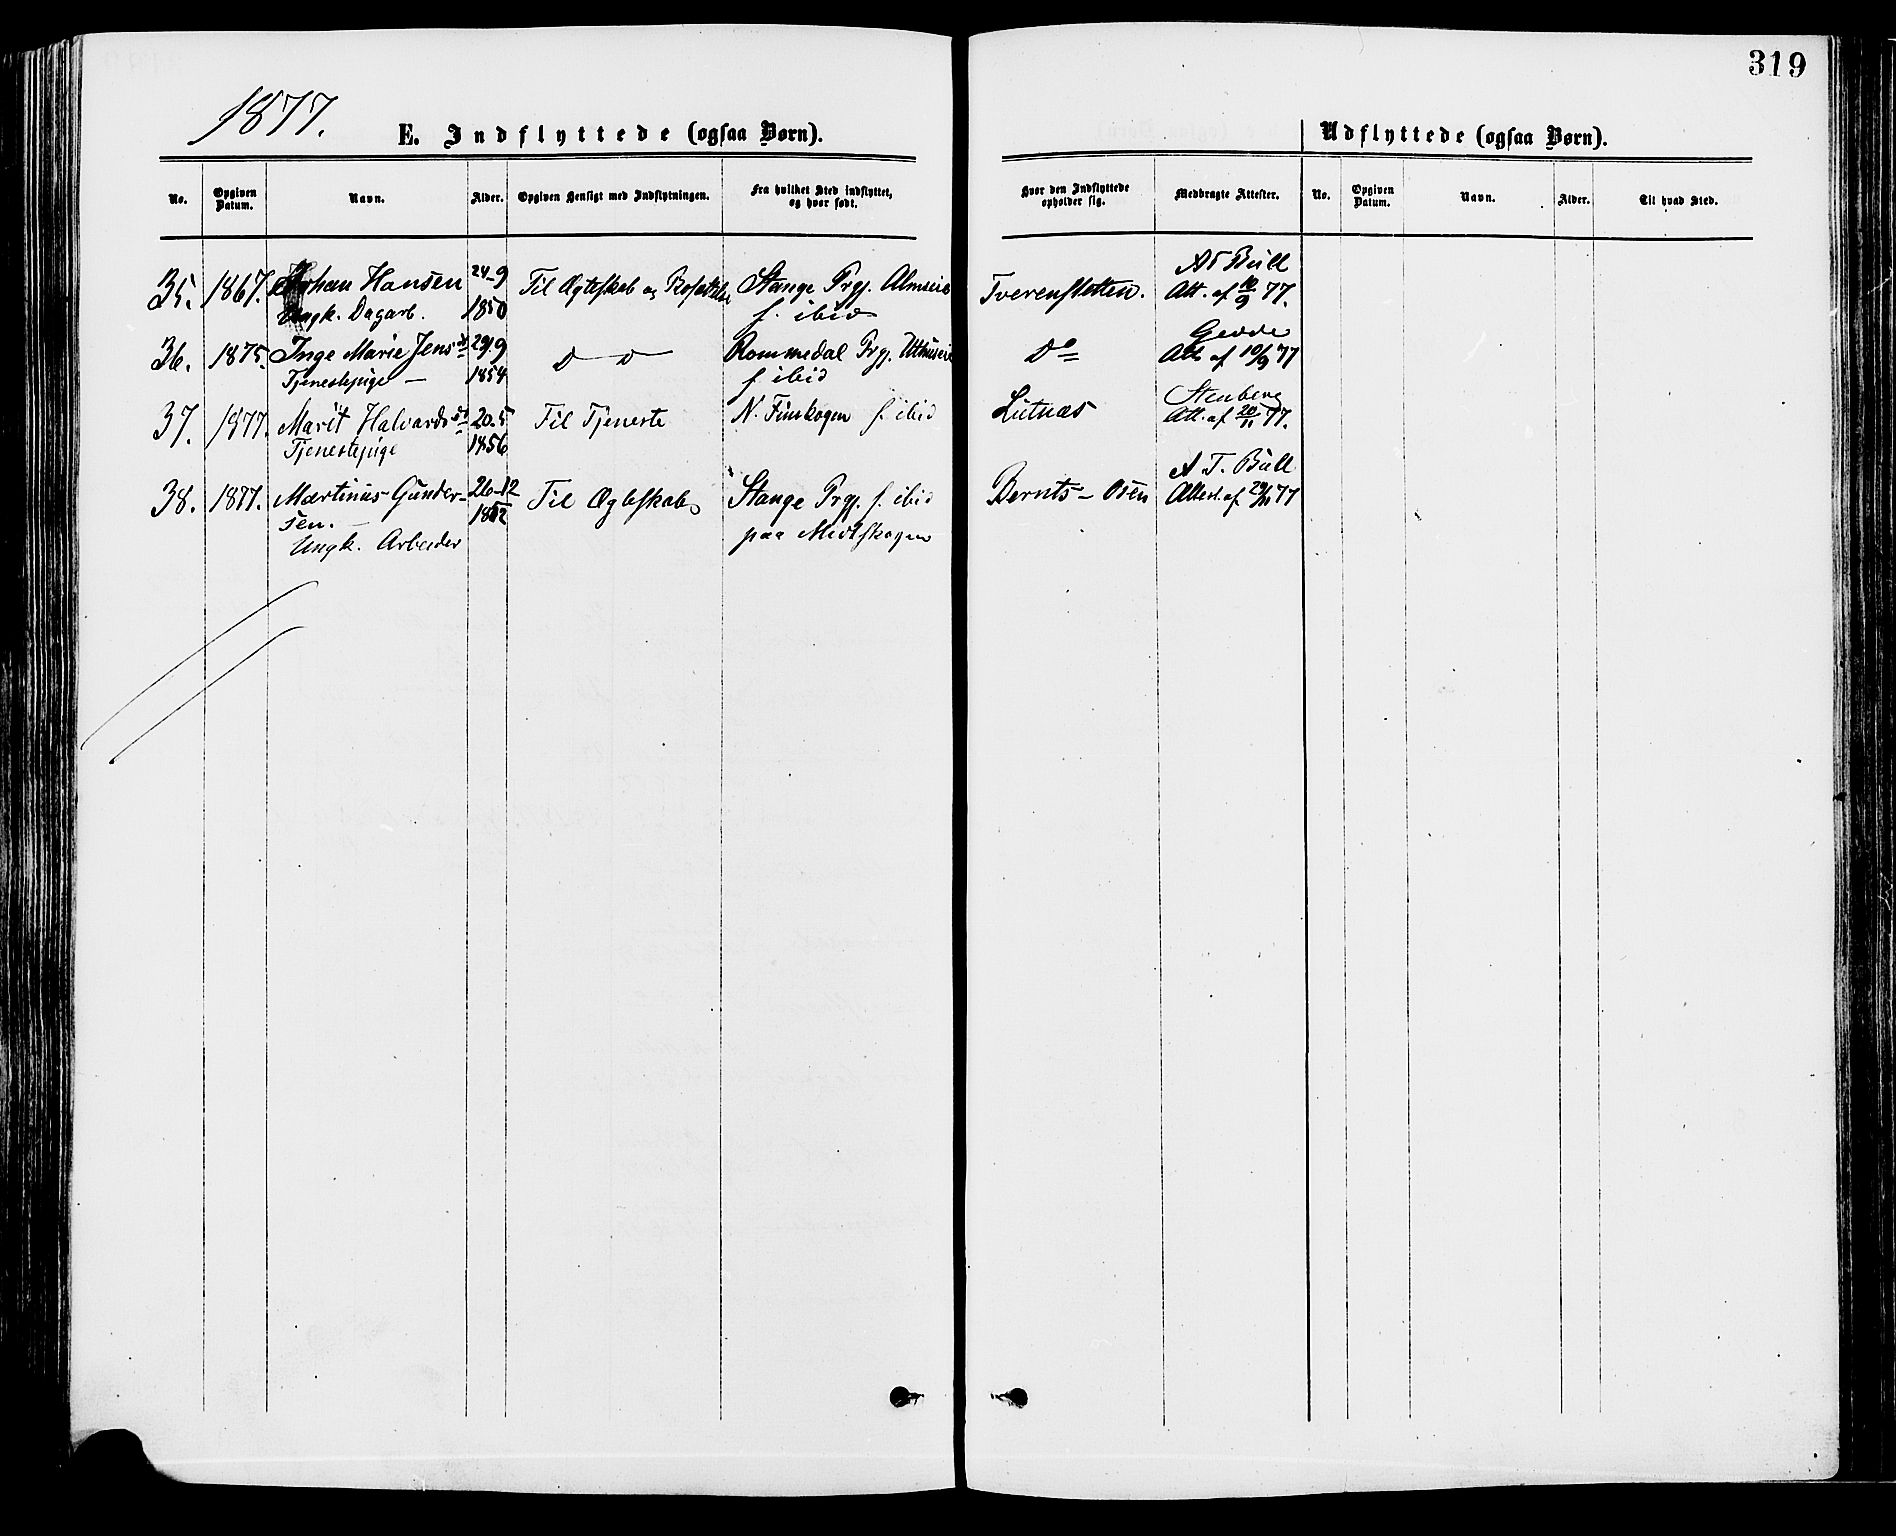 319
1877.
E. Indflyttede (ogsaa Børn).
Udflyttede (ogsaa Børn).
No.
Opgiven Datum.
Navn.
Alder.
Opgiven Hensigt med Indflytningen.
Fra hvilket Sted indflyttet, og hvor født.
Hvor den Indflyttede opholder sig.
Medbragte Attester.
No.
Opgiven Datum.
Navn.
Alder.
Til hvad Sted.
35. 1867. Johan Hansen 24-9 Til Ægteskab og Bosættelse Stange Prgj. Almseie Tverenfletten. A T Bull
Ungk. Dagarb. 1850 f. ibid Att. af 10/9 77.
36. 1875. Inge Marie Jensd. 29-9 D D Rommedal Prgj. D° Gedde
Tjenestepige — 1854 f ibid Att. af 10/9 77
37. 1877. Marit Halvardsd. 20-5 Til Tjeneste N. Finskogen f. ibid Lutnæs Stenberg
Tjenestepige 1856 Att. af 20/11 77.
38. 1877. Martinus Gunder- 26-12 Til Ægteskab Stange Prgj. f. ibid Bernts-Osen A. T. Bull
sen. — 1852 paa Midtskogen Attest. af 29/11 77
Ungk. Arbeider